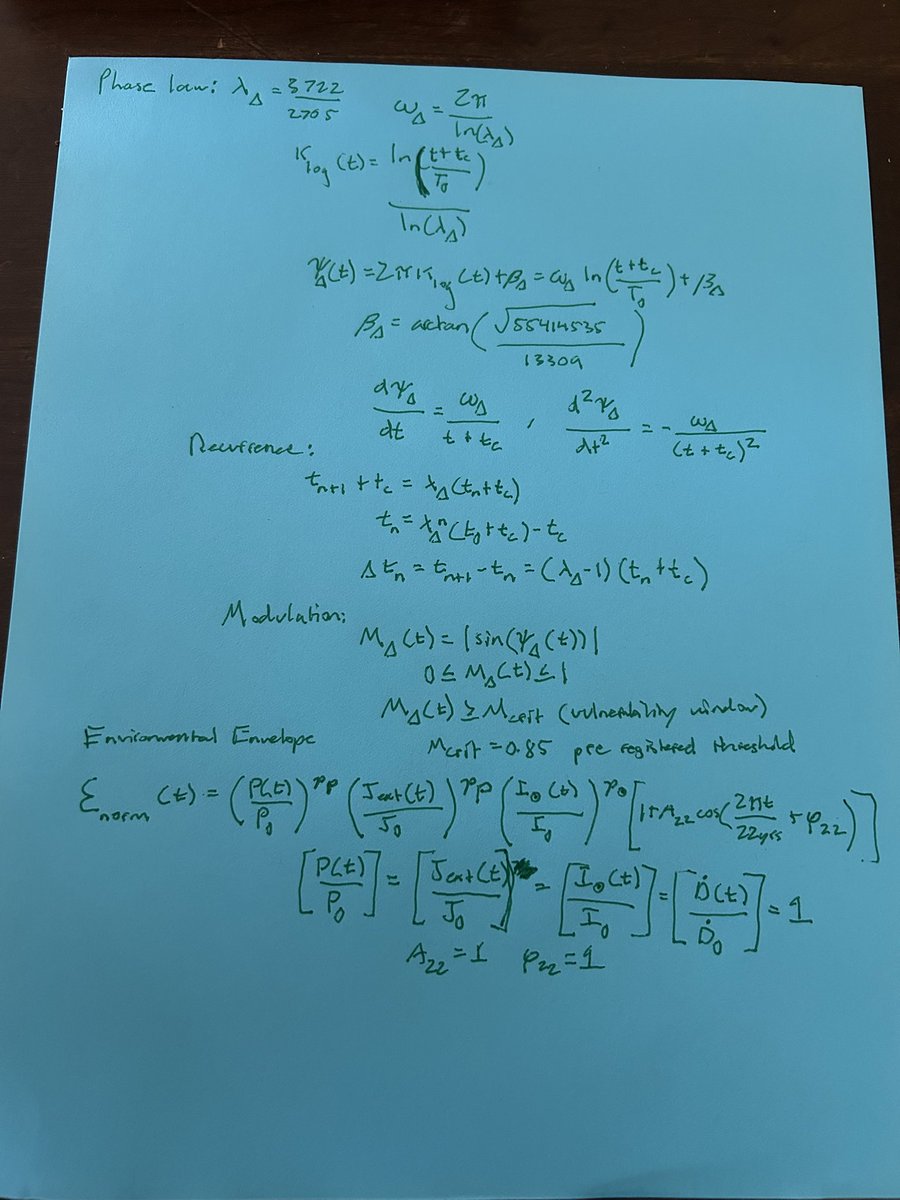 Phase law: λ_Δ = 3722/2705    ω_Δ = 2π/ln(λ_Δ)
K_log(t) = ln((t+t_c)/T_0)/ln(λ_Δ)
ψ_Δ(t) = 2πK_log(t)+β_Δ = ω_Δ ln((t+t_c)/T_0)+β_Δ
β_Δ = arctan(√55414535/13309)
dψ_Δ/dt = ω_Δ/(t+t_c) , d²ψ_Δ/dt² = -ω_Δ/(t+t_c)²
Recurrence:
t_{n+1} + t_c = λ_Δ(t_n+t_c)
t_n = λ_Δ^n(t_0+t_c)-t_c
Δt_n = t_{n+1}-t_n = (λ_Δ-1)(t_n+t_c)
Modulation:
M_Δ(t) = |sin(ψ_Δ(t))|
0 ≤ M_Δ(t) ≤ 1
M_Δ(t) ≥ M_crit (vulnerability window)
Environmental Envelope
M_crit = 0.85 pre registered threshold
Ɛ_norm(t) = (P(t)/P_0)^{γ_P} (J_ext(t)/J_0)^{γ_P} (I_⊙(t)/I_0)^{γ_⊙} [1+A_22 cos(2πt/22yrs + φ_22)]
[P(t)/P_0] = [J_ext(t)/J_0] = [I_⊙(t)/I_0] = [Ḋ(t)/Ḋ_0] = 1
A_22 = 1    φ_22 = 1